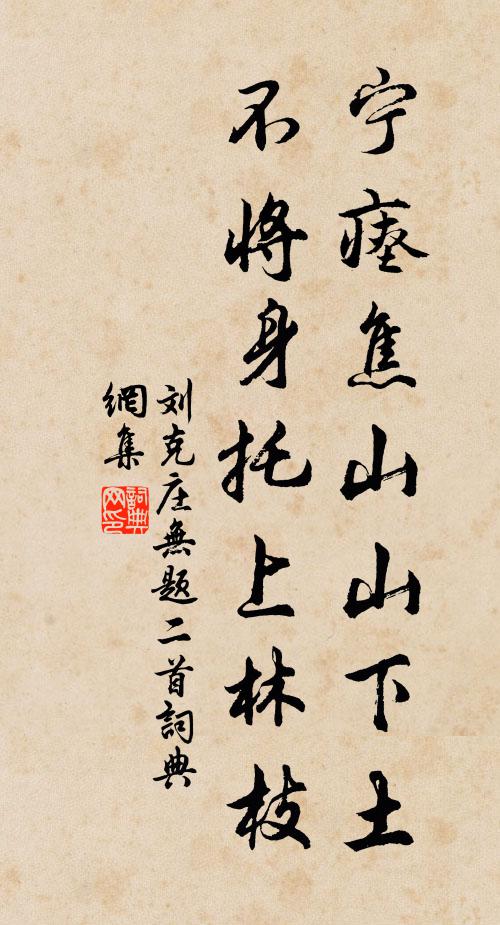 宁瘗焦山山下土
不将身托上林枝
刘克庄無题二首詞典
網集
詞典
网印